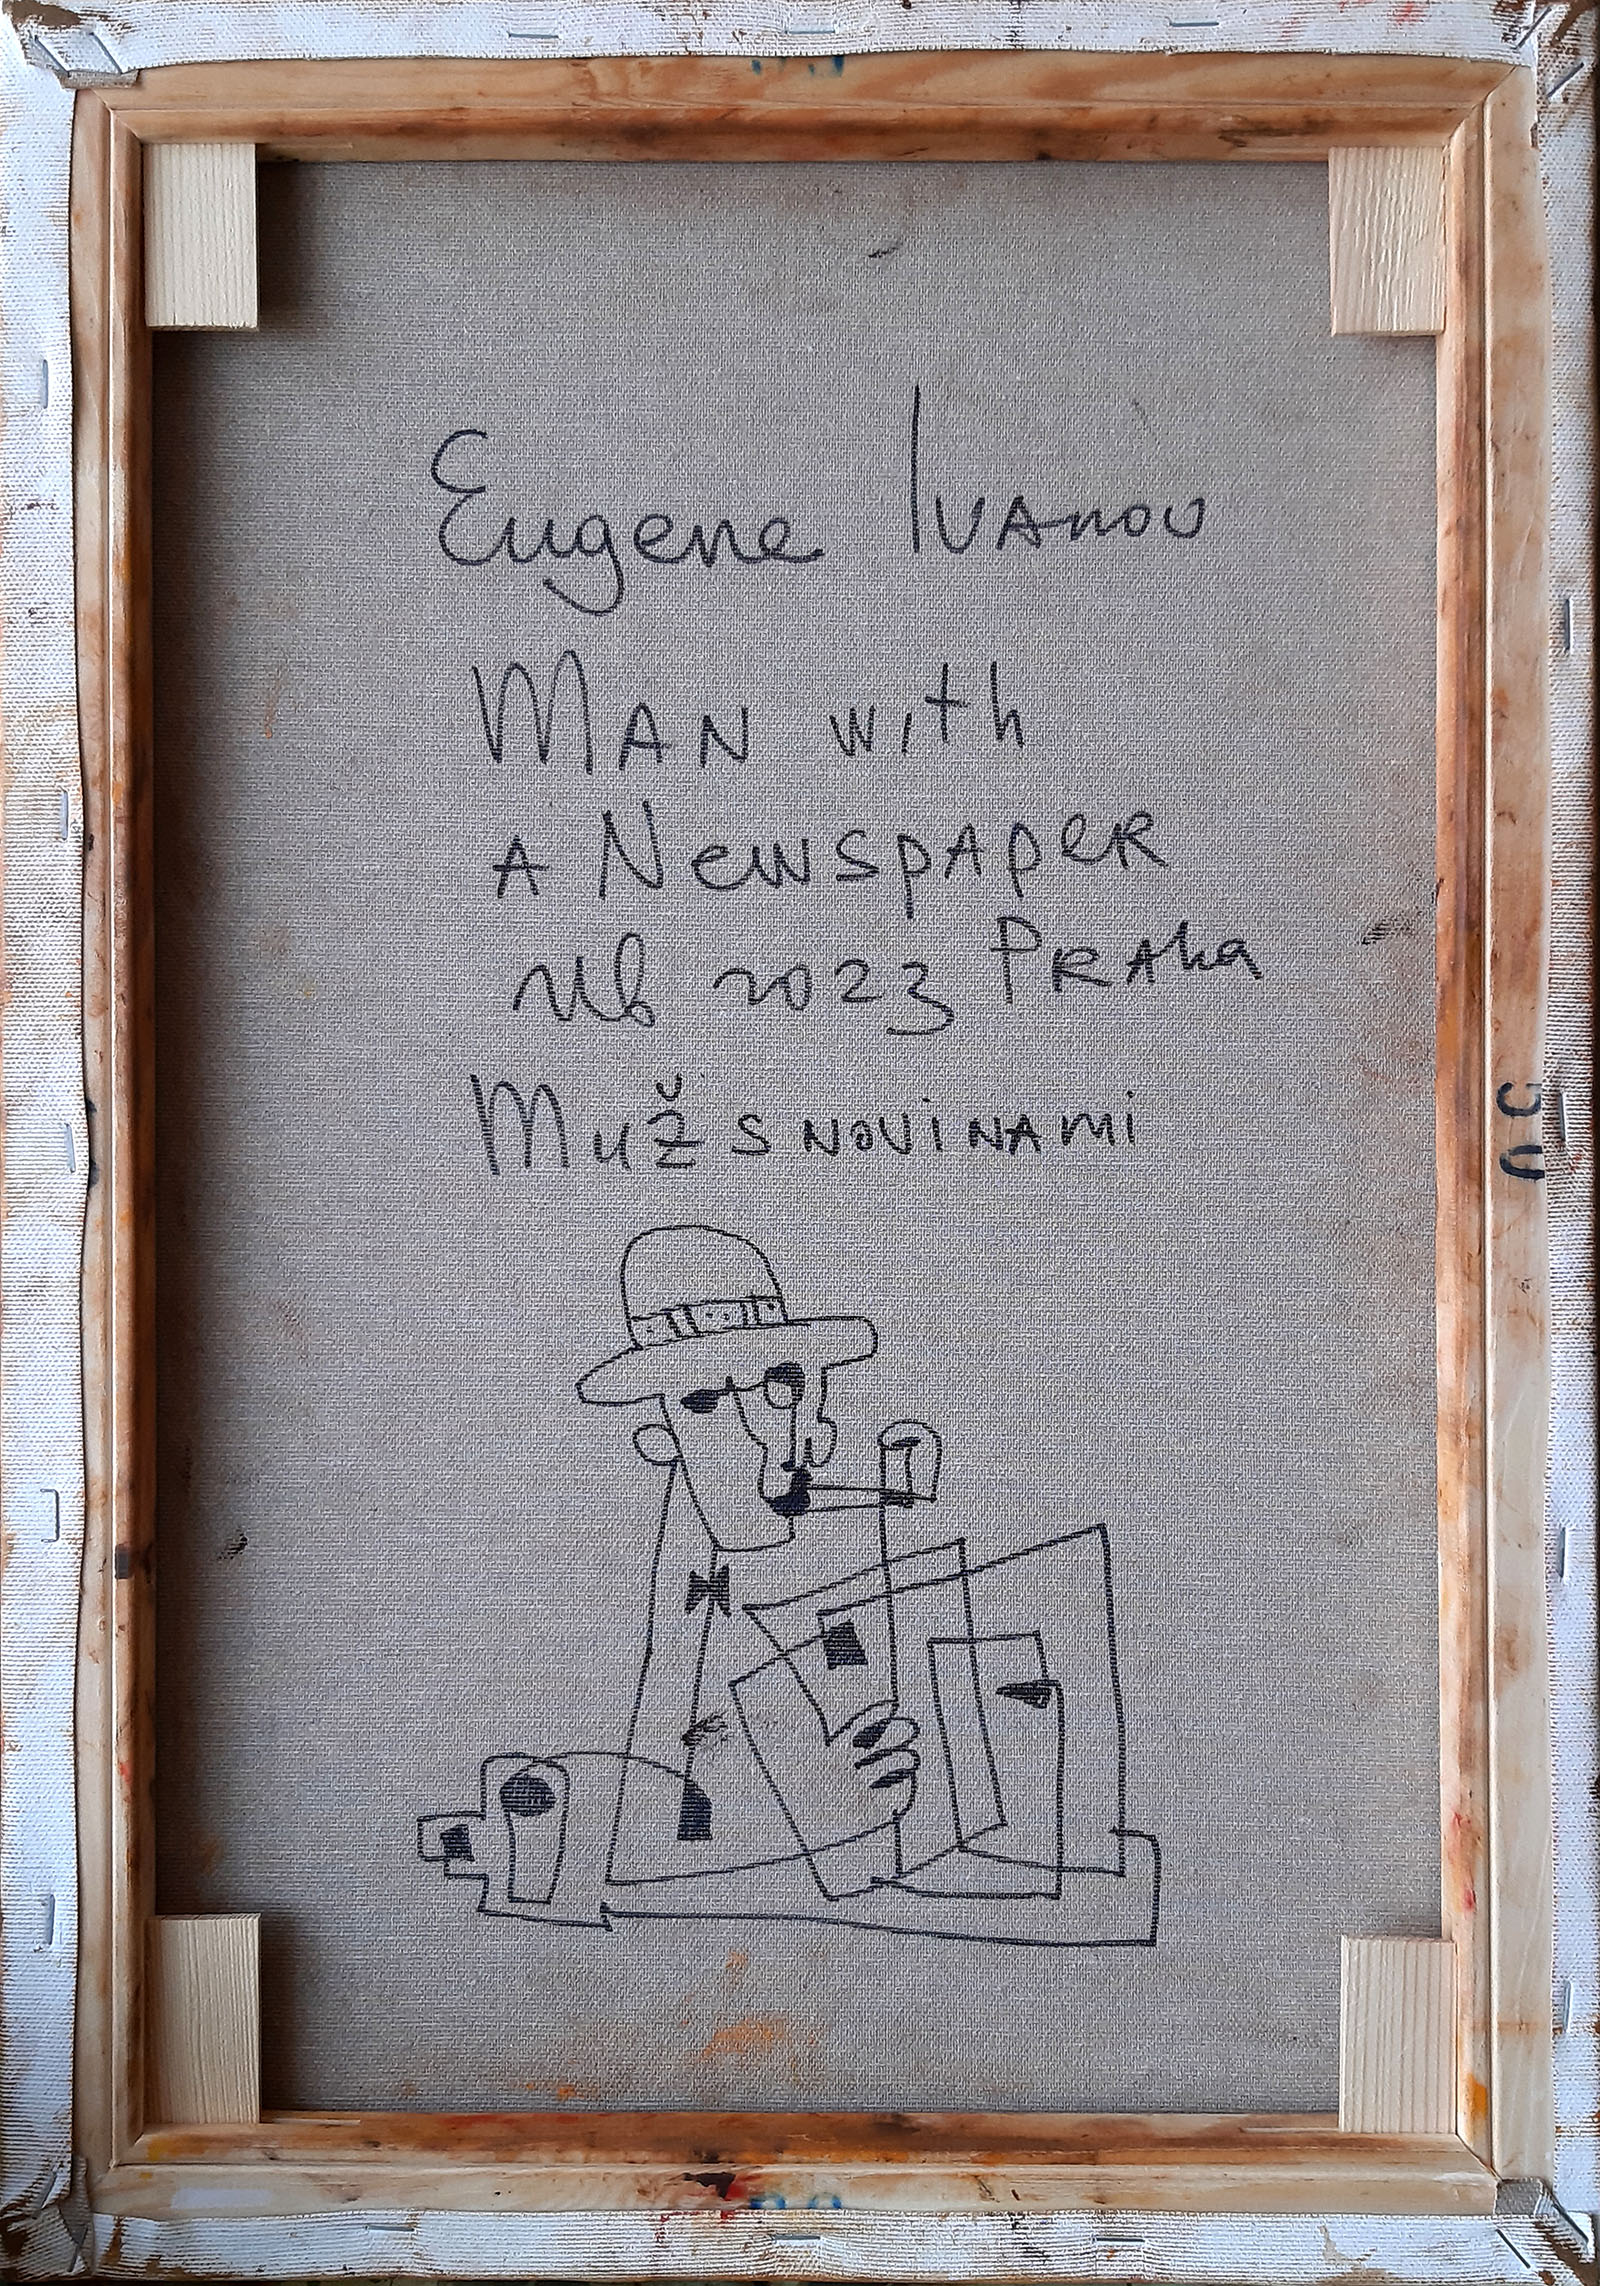 Eugene Ivanov
Man with
a Newspaper
2023 Praha
Muž s novinami